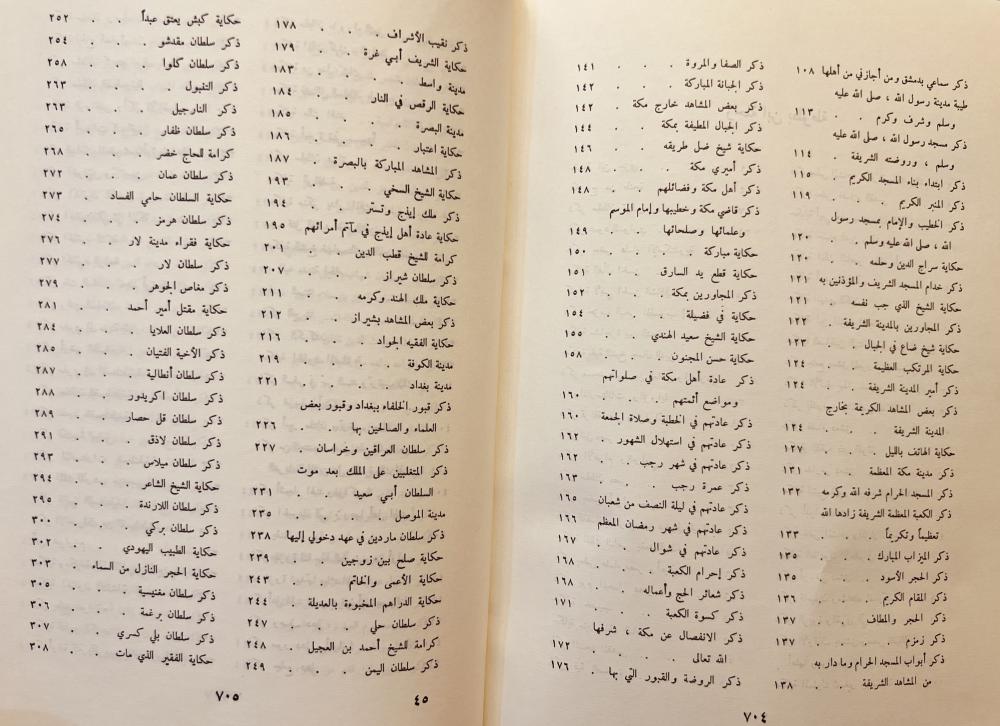 ذكر سماعي بدمشق ومن أجازني من أهلها ١٠٨
طيبة مدينة رسول الله ، صلى الله عليه
وسلم وشرف وكرم . . ١١٣
ذكر مسجد رسول الله ، صلى الله عليه
وسلم ، وروضته الشريفة . ١١٤
ذكر ابتداء بناء المسجد الكريم . ١١٥
ذكر المنبر الكريم . . . ١١٩
ذكر الخطيب والإمام بمسجد رسول
الله ، صلى الله عليه وسلم . . ١٢٠
حكاية سراج الدين وحلمه . ١٢٠
ذكر خدام المسجد الشريف والمؤذنين به ١٢١
حكاية الشيخ الذي جب نفسه . ١٢١
ذكر المجاورين بالمدينة الشريفة . ١٢٢
حكاية شيخ ضاع في الجبال . ١٢٣
حكاية المرتكب العظيمة . . ١٢٤
ذكر أمير المدينة الشريفة . . ١٢٤
ذكر بعض المشاهد الكريمة بخارج
المدينة الشريفة . . . ١٢٤
حكاية الهاتف بالليل . . ١٢٧
ذكر مدينة مكة المعظمة . . ١٣١
ذكر المسجد الحرام شرفه الله وكرمه ١٣٢
ذكر الكعبة المعظمة الشريفة زادها الله
تعظيماً وتكريماً . . . ١٣٣
ذكر الميزاب المبارك . . . ١٣٥
ذكر الحجر الأسود . . . ١٣٥
ذكر المقام الكريم . . . ١٣٦
ذكر الحجر والمطاف . . ١٣٧
ذكر زمزم . . . . ١٣٧
ذكر أبواب المسجد الحرام وما دار به
من المشاهد الشريفة . . ١٣٨
ذكر الصفا والمروة . . . ١٤١
ذكر الجبانة المباركة . . . ١٤٢
ذكر بعض المشاهد خارج مكة . ١٤٢
ذكر الجبال المطيفة بمكة . . ١٤٤
حكاية شيخ ضل طريقه . . ١٤٦
ذكر أميري مكة . . . ١٤٨
ذكر أهل مكة وفضائلهم . . ١٤٨
ذكر قاضي مكة وخطيبها وإمام الموسم
وعلمائها وصلحائها . . ١٤٩
حكاية مباركة . . . . ١٥٠
حكاية قطع يد السارق . . ١٥١
ذكر المجاورين بمكة . . . ١٥٢
حكاية في فضيلة . . . ١٥٤
حكاية الشيخ سعيد الهندي . . ١٥٥
حكاية حسن المجنون . . . ١٥٨
ذكر عادة أهل مكة في صلواتهم
ومواضع أئمتهم . . . ١٦٠
ذكر عادتهم في الخطبة وصلاة الجمعة ١٦٠
ذكر عادتهم في استهلال الشهور . ١٦٢
ذكر عادتهم في شهر رجب . . ١٦٢
ذكر عمرة رجب . . . ١٦٣
ذكر عادتهم في ليلة النصف من شعبان ١٦٥
ذكر عادتهم في شهر رمضان المعظم ١٦٦
ذكر عادتهم في شوال . . ١٦٧
ذكر إحرام الكعبة . . . ١٦٨
ذكر شعائر الحج وأعماله . . ١٦٨
ذكر كسوة الكعبة . . . ١٧١
ذكر الانفصال عن مكة ، شرفها
الله تعالى . . . . ١٧٢
ذكر الروضة والقبور التي بها . . ١٧٦
٧٠٤
ذكر نقيب الأشراف . . . ١٧٨
حكاية الشريف أبي غرة . . ١٧٩
مدينة واسط . . . . ١٨٣
حكاية الرقص في النار . . ١٨٤
مدينة البصرة . . . . ١٨٥
حكاية اعتبار . . . . ١٨٦
ذكر المشاهد المباركة بالبصرة . ١٨٧
حكاية الشيخ السخي . . ١٩٣
ذكر ملك إيذج وتستر . . ١٩٤
حكاية عادة أهل إيذج في مآتم أمرائهم ١٩٥
كرامة للشيخ قطب الدين . . ٢٠١
ذكر سلطان شيراز . . . ٢٠٧
حكاية ملك الهند وكرمه . . ٢١١
ذكر بعض المشاهد بشيراز . . ٢١٢
حكاية الفقيه الجواد . . . ٢١٦
مدينة الكوفة . . . . ٢١٩
مدينة بغداد . . . . ٢٢١
ذكر قبور الخلفاء ببغداد وقبور بعض
العلماء والصالحين بها . . ٢٢٦
ذكر سلطان العراقين وخراسان . ٢٢٧
ذكر المتغلبين على الملك بعد موت
السلطان أبي سعيد . . ٢٣١
مدينة الموصل . . . . ٢٣٥
ذكر سلطان ماردين في عهد دخولي إليها ٢٣٨
حكاية صلح بين زوجين . . ٢٣٩
حكاية الأعمى والخاتم . . ٢٤٣
حكاية الدراهم المخبوءة بالعديلة . ٢٤٤
ذكر سلطان حلي . . . ٢٤٧
كرامة للشيخ أحمد بن العجيل . ٢٤٨
ذكر سلطان اليمن . . . ٢٤٩
حكاية كبش يعتق عبداً . . ٢٥٢
ذكر سلطان مقدشو . . . ٢٥٤
ذكر سلطان كلوا . . . ٢٥٨
ذكر التنبول . . . . ٢٦٣
ذكر النارجيل . . . . ٢٦٣
ذكر سلطان ظفار . . . ٢٦٥
كرامة للحاج خضر . . . ٢٦٨
ذكر سلطان عمان . . . ٢٧٢
حكاية السلطان حامي الفساد . ٢٧٣
ذكر سلطان هرمز . . . ٢٧٤
حكاية فقراء مدينة لار . . ٢٧٦
ذكر سلطان لار . . . ٢٧٧
ذكر مغاص الجوهر . . . ٢٧٩
حكاية مقتل أمير أحمد . . ٢٨١
ذكر سلطان العلايا . . . ٢٨٤
ذكر الأخية الفتيان . . . ٢٨٥
ذكر سلطان أنطالية . . . ٢٨٧
ذكر سلطان اكريدور . . ٢٨٨
ذكر سلطان قل حصار . . ٢٨٩
ذكر سلطان لاذق . . . ٢٩١
ذكر سلطان ميلاس . . . ٢٩٣
حكاية الشيخ الشاعر . . . ٢٩٤
ذكر سلطان اللارندة . . . ٢٩٥
ذكر سلطان بركي . . . ٣٠٠
حكاية الطبيب اليهودي . . ٣٠٢
حكاية الحجر النازل من السماء . ٣٠٣
ذكر سلطان مغنيسية . . . ٣٠٥
ذكر سلطان برغمة . . . ٣٠٦
ذكر سلطان بلي كسري . . ٣٠٧
حكاية الفقير الذي مات . . ٣٠٨
٤٥
٧٠٥